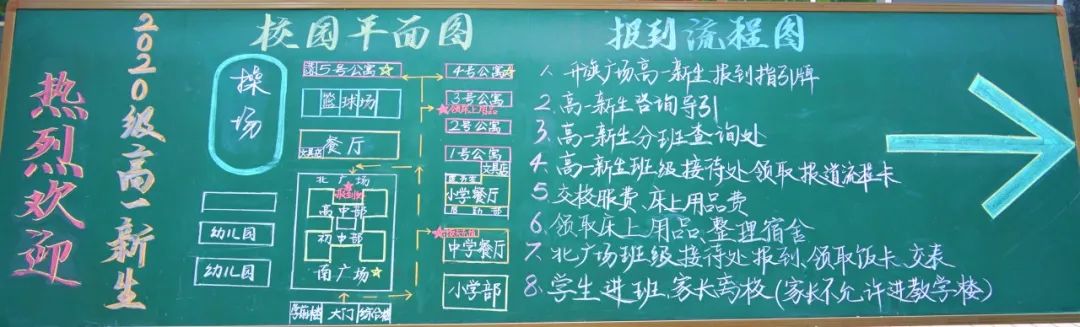 热烈欢迎
2020级高一新生
校园平面图
操场
5号公寓
4号公寓
篮球场
3号公寓
领床上用品
2号公寓
餐厅
文具店
1号公寓
文具店
北广场
报到处
高中部
初中部
南广场
小学餐厅
后勤部
中学餐厅
小学部
幼儿园
幼儿园
学前楼
大门
综合楼
报到流程图
1. 升旗广场高一新生报到指引牌
2. 高一新生咨询导引
3. 高一新生分班查询处
4. 高一新生班级接待处领取报道流程卡
5. 交校服费、床上用品费
6. 领取床上用品、整理宿舍
7. 北广场班级接待处报到、领取饭卡、交表
8. 学生进班、家长离校(家长不允许进教学楼)